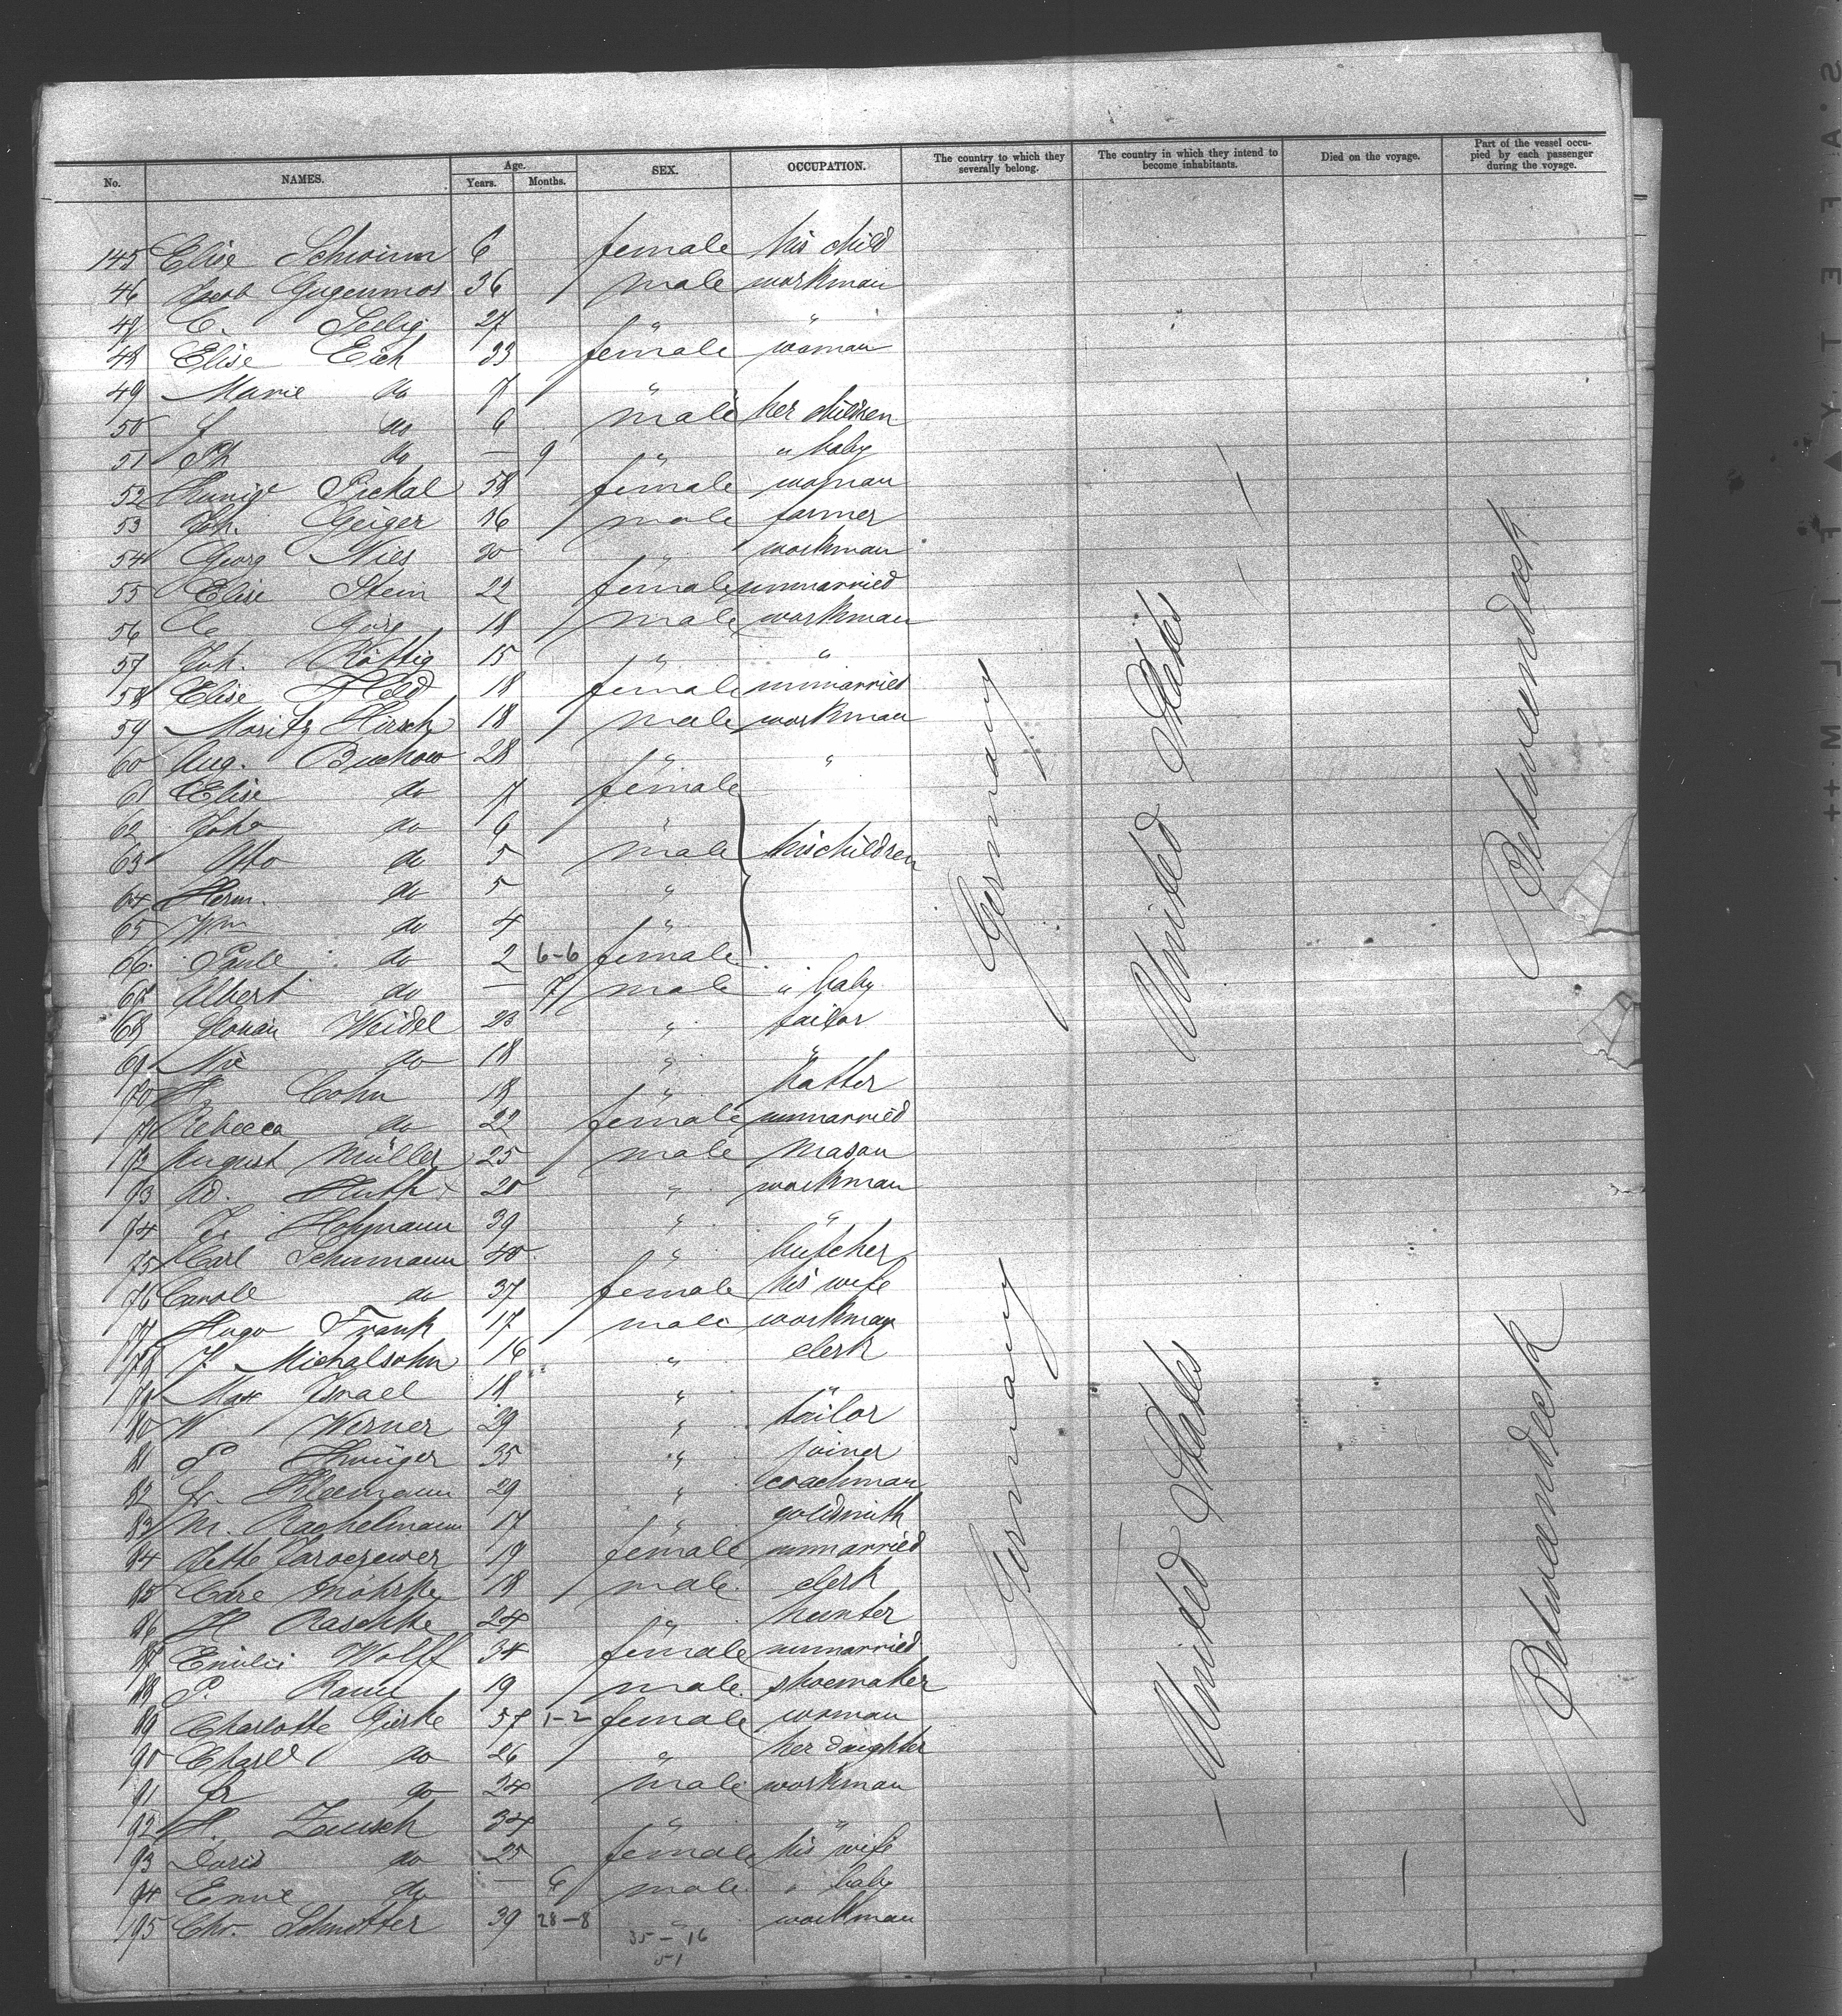 No. NAMES. Age. Years. Months. SEX. OCCUPATION. The country to which they severally belong. The country in which they intend to become inhabitants. Died on the voyage. Part of the vessel occupied by each passenger during the voyage.
145 Elise Schwinn 6 female his child
46 Jacob Gugenmos 36 male workman
47 C. Seelig 27 " "
48 Elise Eich 33 female woman
49 Marie do 7 "
50 J do 6 male her children
51 Ph do — 9 " " baby
52 Kunig Pickal 58 female woman
53 Joh. Geiger 16 male farmer
54 Georg Nies 30 " workman
55 Elise Stein 22 female unmarried
56 18 male workman
57 Joh. Röttig 15 " "
58 Elise Held 18 female unmarried
59 Moritz Hirsch 18 male workman
60 Aug. Buchow 28 " "
61 Elise do 7 female
62 do 6 "
63 Otto do 5 male his children
64 Herm. do 5 "
65 Wm do 4 "
66 Paul do 2 6-6 female
67 Albert do — 7 male " baby
68 Florian Weidel 23 " tailor
69 Nic do 18 " "
70 H. Cohn 19 " hatter
71 Rebecca do 22 female unmarried
72 August Müller 25 male mason
73 Ad. Huth 20 " workman
74 Hohmann 39 " "
75 Carl Schumann 40 " butcher
76 Carole do 37 female his wife
77 Hugo Frank 17 male workman
78 J. Michalsohn 16 " clerk
79 Max Israel 18 " "
80 W Werner 29 " tailor
81 P Krüger 35 " joiner
82 Fr. Kleemann 29 " coachman
83 M. Raphelmann 17 " goldsmith
84 female unmarried
85 18 male clerk
86 H Raschke 24 " hunter
87 Emilie Wolff 34 female unmarried
88 P. 19 male shoemaker
89 Charlotte Gierke 57 1-2 female woman
90 Charl do 26 " her daughter
91 Fr do 24 male workman
92 H. Zausch 34 " "
93 Doris do 25 female his wife
94 do — 6 male " baby
95 Chr. Schnetter 39 28-8 " workman
35 - 16
51
Germany
United States
Betweendeck
Germany
United States
Betweendeck